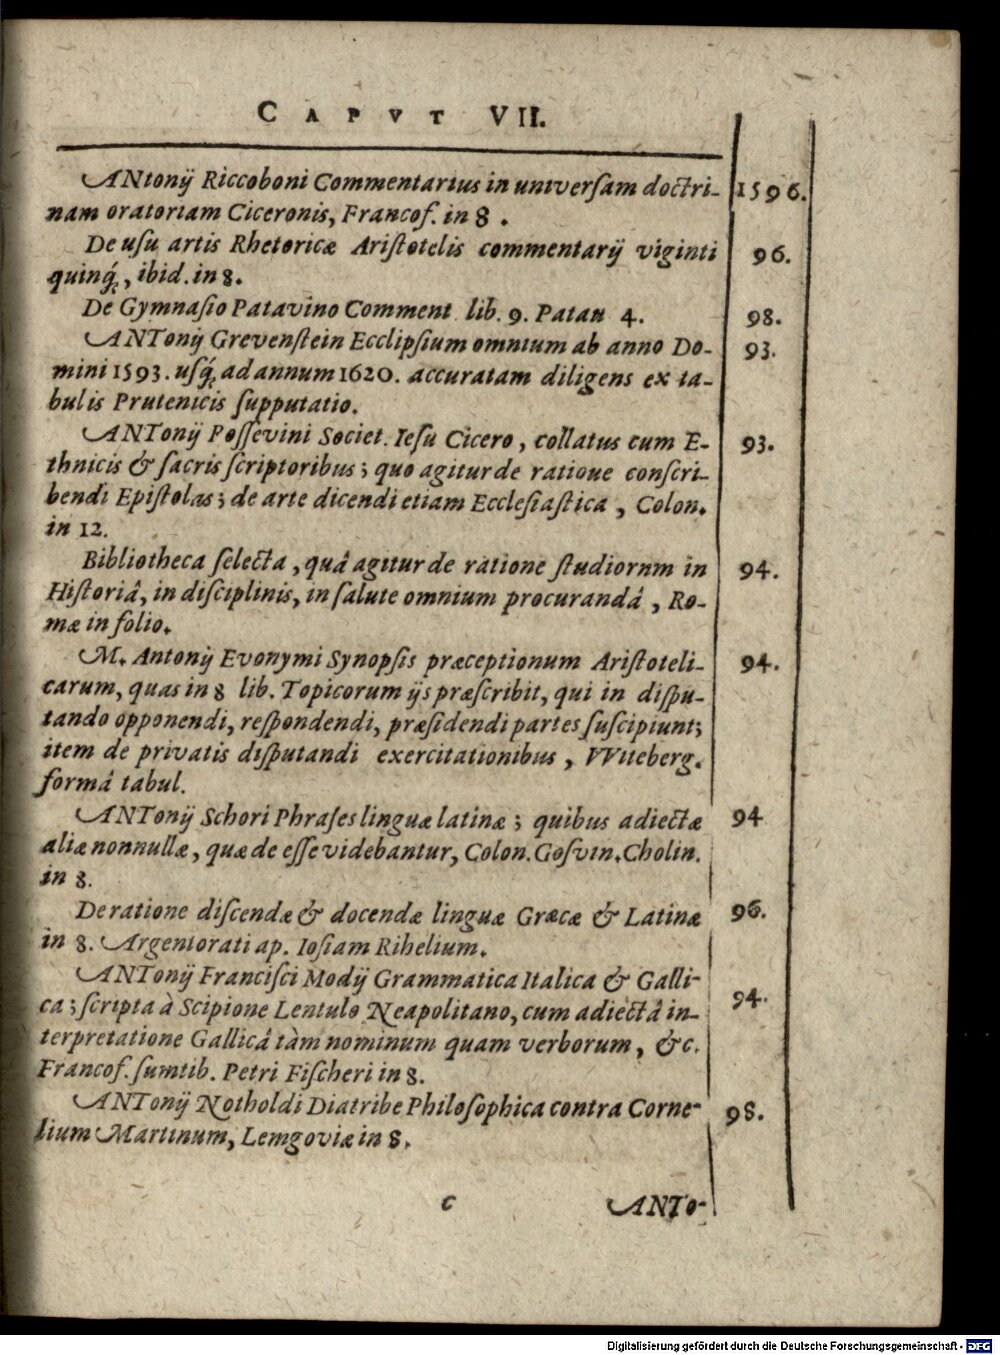 CAPVT VII.
ANtonij Riccoboni Commentarius in universam doctri- 1596.
nam oratoriam Ciceronis, Francof. in 8.
De usu artis Rhetoricæ Aristotelis commentarij viginti 96.
quinq́;, ibid. in 8.
De Gymnasio Patavino Comment lib. 9. Patau 4. 98.
ANTonij Grevenstein Ecclipsium omnium ab anno Do- 93.
mini 1593. usq́; ad annum 1620. accuratam diligens ex ta-
bulis Prutenicis supputatio.
ANTonij Possevini Societ. Iesu Cicero, collatus cum E- 93.
thnicis & sacris scriptoribus; quo agitur de ratioue conscri-
bendi Epistolas; de arte dicendi etiam Ecclesiastica, Colon.
in 12.
Bibliotheca selecta, quâ agitur de ratione studiornm in 94.
Historiâ, in disciplinis, in salute omnium procurandâ, Ro-
mæ in folio.
M. Antonij Evonymi Synopsis præceptionum Aristoteli- 94.
carum, quas in 8 lib. Topicorum ijs præscribit, qui in dispu-
tando opponendi, respondendi, præsidendi partes suscipiunt;
item de privatis disputandi exercitationibus, VViteberg.
formâ tabul.
ANTonij Schori Phrases linguæ latinæ; quibus adiectæ 94
aliæ nonnullæ, quæ de esse videbantur, Colon. Gosvin. Cholin.
in 8.
De ratione discendæ & docendæ linguæ Græcæ & Latinæ 96.
in 8. Argentorati ap. Iosiam Rihelium.
ANTonij Francisci Modij Grammatica Italica & Galli-
ca; scripta à Scipione Lentulo Neapolitano, cum adiectâ in- 94.
terpretatione Gallicâ tàm nominum quam verborum, &c.
Francof. sumtib. Petri Fischeri in 8.
ANTonij Notholdi Diatribe Philosophica contra Corne- 98.
lium Martinum, Lemgoviæ in 8.
c ANTo-
Digitalisierung gefördert durch die Deutsche Forschungsgemeinschaft - DFG